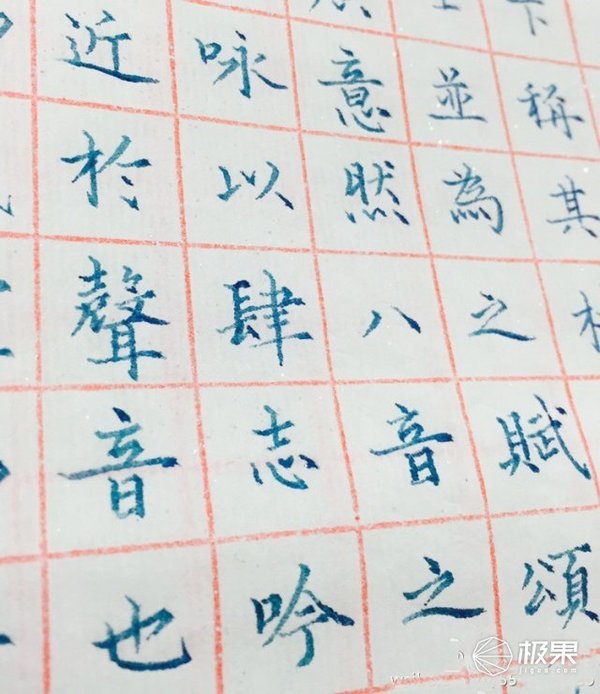 近於聲音也
咏以肆志吟
意然八音之
並為之賦頌
稱其
极果
jiguo.com